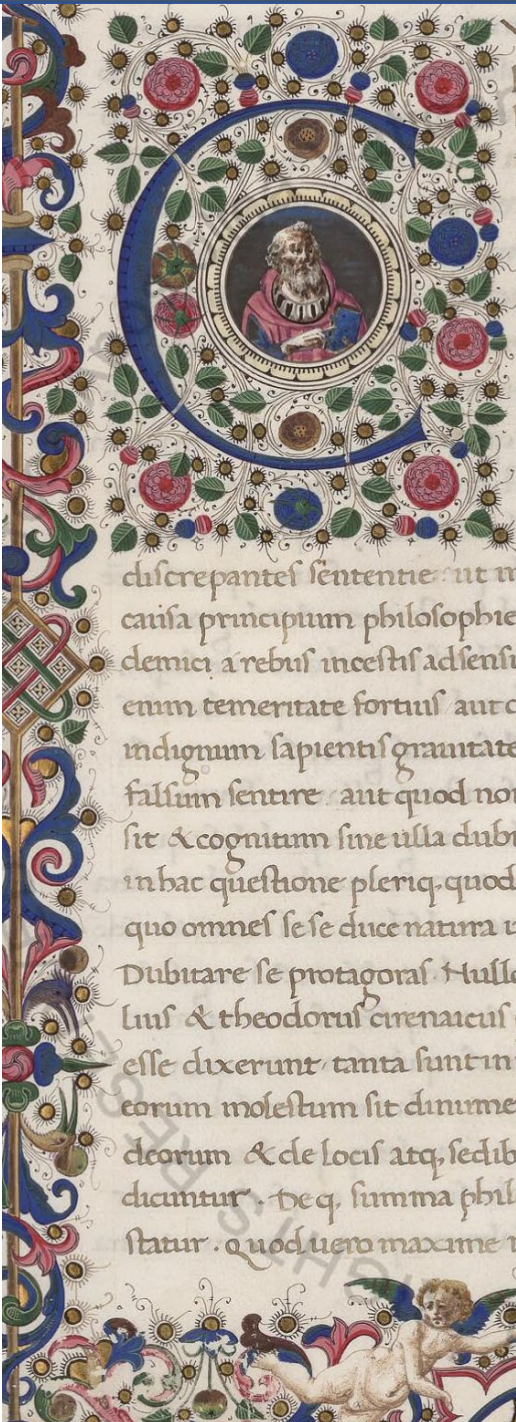 C
discrepantes sententie ut
causa principium philosophie
demici a rebus incestis adsensi
enim temeritate fortius aut
indignum sapientis grauitate
falsum sentire aut quod non
sit & cognitum sine ulla dubi
in hac questione pleriq, quod
quo omnes se se duce natura
Dubitare se protagoras Nullo
lius & theodorus cirenaicus
esse dixerunt tanta sunt in
eorum molestum sit dinume
deorum & de locis atq, sedib
dicuntur. Deq, summa phil
statur. quod uero maxime